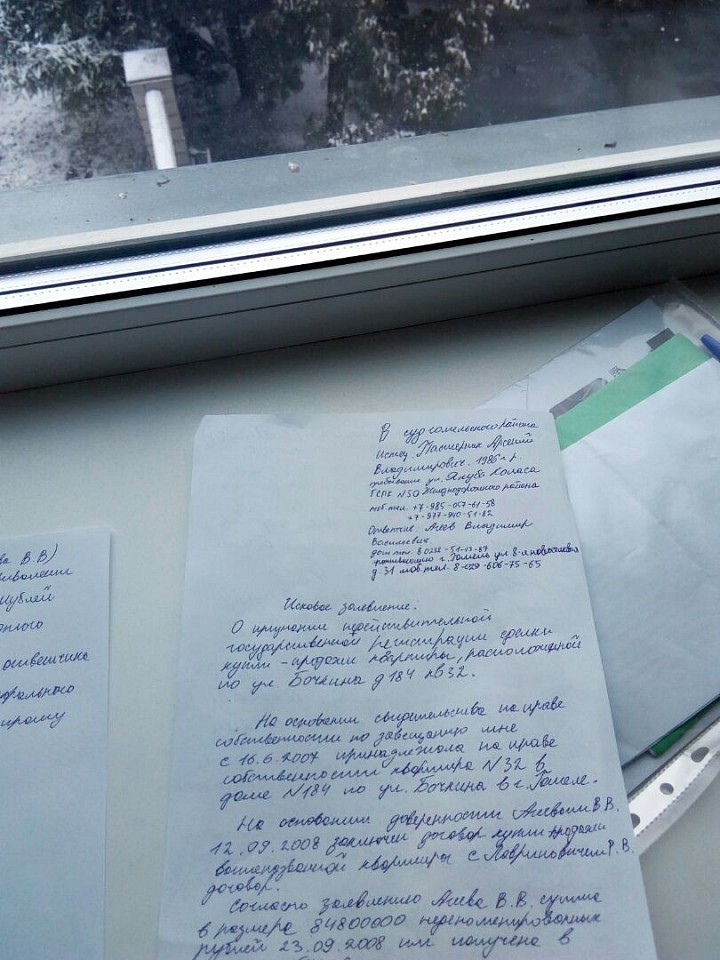 ва В.В)
рублей
ответчика
прошу
В суд гомельского района
Истец. Пастернак Арсений
Владимирович. 1986 г.р.
ул. Якуба Коласа
N50 Железнодорожного района
моб тел. +7-985-057-61-58
+7-977-940-51-82
Ответчик Агеев Владимир
Васильевич.
дом тел. 8 0232-51-13-87
проживающий г. Гомель ул 8-я
д 31 моб. тел. 8-029-606-75-65
Исковое заявление.
О признании недействительной
государственной регистрации сделки
купли-продажи квартиры, расположенной
по ул. Бочкина д 184 кв 32.
На основании свидетельства на праве
собственности по завещанию мне
с 16.6.2007 принадлежала на праве
собственности квартира N32 в
доме N184 по ул. Бочкина в г. Гомеле.
На основании доверенности Агеевым В.В.
12.09.2008 заключен договор купли продажи
вышеназванной квартиры с Лавриновичем Р.В.
договор.
Согласно заявлению Агеева В.В. сумма
в размере 84800000 неденоминированных
рублей 23.09.2008 им получена в